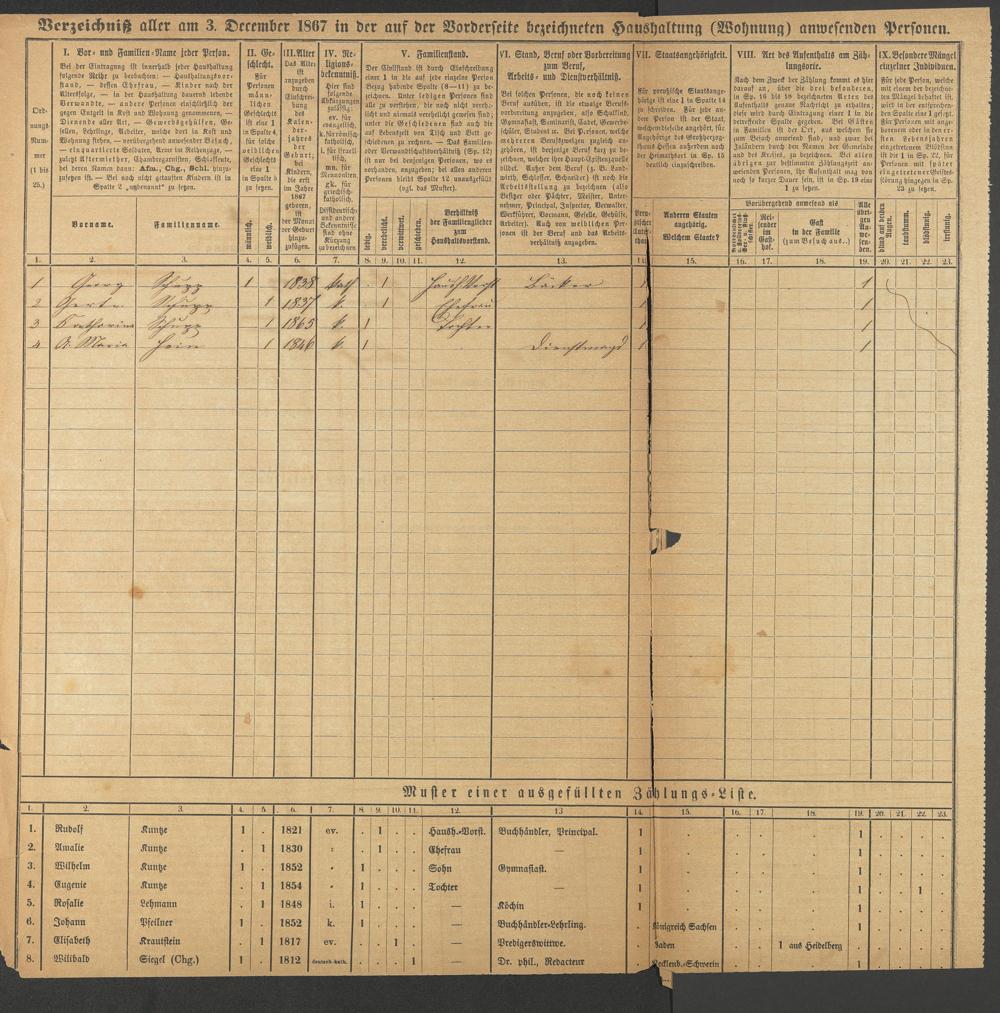 Verzeichniß aller am 3. December 1867 in der auf der Vorderseite bezeichneten Haushaltung (Wohnung) anwesenden Personen.
Ord-
nungs-
Num-
mer
(1 bis
25.)
I. Vor- und Familien-Name jeder Person.
Bei der Eintragung ist innerhalb jeder Haushaltung
folgende Reihe zu beobachten: — Haushaltungsvor-
stand, — dessen Ehefrau, — Kinder nach der
Altersfolge, — in der Haushaltung dauernd lebende
Verwandte, — andere Personen einschließlich der
gegen Entgelt in Kost und Wohnung genommenen, —
Dienende aller Art, — Gewerbsgehilfen, Ge-
sellen, Lehrlinge, Arbeiter, welche dort in Kost und
Wohnung stehen, — vorübergehend anwesender Besuch,
— einquartierte Soldaten, Arme im Reihenzuge, —
zuletzt Aftermiether, Chambregarnisten, Schlafleute,
bei deren Namen dann: Afm., Chg., Schl. hinzu-
zusetzen ist. — Bei noch nicht getauften Kindern ist in
Spalte 2 „unbenannt“ zu setzen.
Vorname.
Familienname.
II. Ge-
schlecht.
Für
Personen
män-
lichen
Geschlechts
ist eine 1
in Spalte 4,
für solche
weiblichen
Geschlechts
eine 1
in Spalte 5
zu setzen.
männlich.
weiblich.
III. Alter
Das Alter
ist
anzugeben
durch
Einschrei-
bung
des
Kalen-
der-
jahres
der
Geburt;
bei
Kindern,
die erst
im Jahre
1867
geboren,
ist
der Monat
der Geburt
hinzu-
zufügen.
IV. Re-
ligions-
bekenntniß.
Hier sind
folgende
Abkürzungen
zulässig:
ev. für
evangelisch,
k. für römisch-
katholisch,
i. für israeli-
tisch,
mn. für
Mennoniten,
gk. für
griechisch-
katholisch.
Dissidentisch-
und andere
Bekenntnisse
sind ohne
Kürzung
zu bezeichnen
V. Familienstand.
Der Civilstand ist durch Einschreibung
einer 1 in die auf jede einzelne Person
Bezug habende Spalte (8—11) zu be-
zeichnen. Unter ledigen Personen sind
alle zu verstehen, die noch nicht verehe-
licht und niemals verehelicht gewesen sind;
unter die Geschiedenen sind auch die
auf Lebenszeit von Tisch und Bett ge-
schiedenen zu rechnen. — Das Familien-
oder Verwandtschaftsverhältniß (Sp. 12)
ist nur bei denjenigen Personen, wo es
vorhanden, anzugeben; bei allen anderen
Personen bleibt Spalte 12 unausgefüllt
(vgl. das Muster).
ledig.
verehelicht.
verwittwet.
geschieden.
Verhältniß
der Familienglieder
zum
Haushaltsvorstand.
VI. Stand, Beruf oder Vorbereitung
zum Beruf,
Arbeits- und Dienstverhältniß.
Bei solchen Personen, die noch keinen
Beruf ausüben, ist die etwaige Berufs-
vorbereitung anzugeben, also Schulkind,
Gymnasiast, Seminarist, Cadet, Gewerbe-
schüler, Student ic. Bei Personen, welche
mehreren Berufszweigen zugleich an-
gehören, ist derjenige Beruf zu bezeich-
nen, welcher ihre Haupt-Existenzquelle
bildet. Außer dem Beruf (z. B. Land-
wirth, Schlosser, Schneider) ist noch die
Arbeitsstellung zu bezeichnen (also
Besitzer oder Pächter, Meister, Unter-
nehmer, Principal, Inspector, Verwalter,
Werkführer, Vormann, Geselle, Gehülfe,
Arbeiter). Auch von weiblichen Per-
sonen ist der Beruf und das Arbeits-
verhältniß anzugeben.
VII. Staatsangehörigkeit.
Für preußische Staatsange-
hörige ist eine 1 in Spalte 14
zu schreiben. Für jede an-
dere Person ist der Staat,
welchem dieselbe angehört, für
Angehörige des Großherzog-
thums Hessen außerdem noch
der Heimathsort in Sp. 15
deutlich einzuschreiben.
Anderen Staaten
angehörig.
Welchem Staate?
VIII. Art des Aufenthalts am Zäh-
lungsorte.
Nach dem Zweck der Zählung kommt es hier
darauf an, über die drei besonderen,
in Sp. 16 bis 18 bezeichneten Arten des
Aufenthalts genaue Nachricht zu erhalten;
diese wird durch Eintragung einer 1 in die
betreffende Spalte gegeben. Bei Gästen
in Familien ist der Ort, aus welchem sie
zum Besuch anwesend sind, und zwar bei
Inländern durch den Namen der Gemeinde
und des Kreises, zu bezeichnen. Bei allen
übrigen zur bestimmten Zählungszeit an-
wesenden Personen, ihr Aufenthalt mag von
noch so kurzer Dauer sein, ist in Sp. 19 eine
1 zu setzen.
Vorübergehend anwesend als
Rei-
sender
im
Gast-
hof.
Gast
in der Familie
(zum Besuch aus..)
Alle
übri-
gen An-
wesen-
den.
IX. Besondere Mängel
einzelner Individuen.
Für jede Person, welche
mit einem der bezeichne-
ten Mängel behaftet ist,
wird in der entsprechen-
den Spalte eine 1 gesetzt.
Für Personen mit ange-
borenem oder in den er-
sten Lebensjahren
eingetretenem Blödsinn
ist die 1 in Sp. 22, für
Personen mit später
eingetretener Geistes-
störung hingegen in Sp.
23 zu setzen.
blind auf beiden Augen.
taubstumm.
blödsinnig.
irrsinnig.
1. 2. 3. 4. 5. 6. 7. 8. 9. 10. 11. 12. 13. 14. 15. 16. 17. 18. 19. 20. 21. 22. 23.
1 Georg Schupp 1 1838 kath 1 Bäcker 1 1
2 Gertr Schupp 1 1837 k. 1 Ehefrau 1 1
3 Katharina Schupp 1 1865 k. 1 Tochter 1 1
4 A. Maria Hein 1 1846 k. 1 Dienstmagd 1 1
Muster einer ausgefüllten Zählungs-Liste.
1. 2. 3. 4. 5. 6. 7. 8. 9. 10. 11. 12. 13 14. 15. 16. 17. 18. 19. 20. 21. 22. 23.
1. Rudolf Kuntze 1 . 1821 ev. . 1 . . Haush.-Vorst. Buchhändler, Principal. 1 . . . . 1 . . . .
2. Amalie Kuntze . 1 1830 " . 1 . . Ehefrau — 1 . . . . 1 . . . .
3. Wilhelm Kuntze 1 . 1852 " 1 . . . Sohn Gymnasiast. 1 . . . . 1 . . . .
4. Eugenie Kuntze . 1 1854 " 1 . . . Tochter — 1 . . . . 1 . . 1 .
5. Rosalie Lehmann . 1 1848 i. 1 . . . — Köchin 1 . . . . 1 . . . .
6. Johann Pfeilner 1 . 1852 k. 1 . . . — Buchhändler-Lehrling. . Königreich Sachsen . . . 1 . . . .
7. Elisabeth Krautstein . 1 1817 ev. . . 1 . — Predigerswittwe. . Baden . . 1 aus Heidelberg . . . . .
8. Wilibald Siegel (Chg.) 1 . 1812 deutsch-kath. . . . 1 — Dr. phil., Redacteur . Mecklenb.-Schwerin . . . 1 . . . .